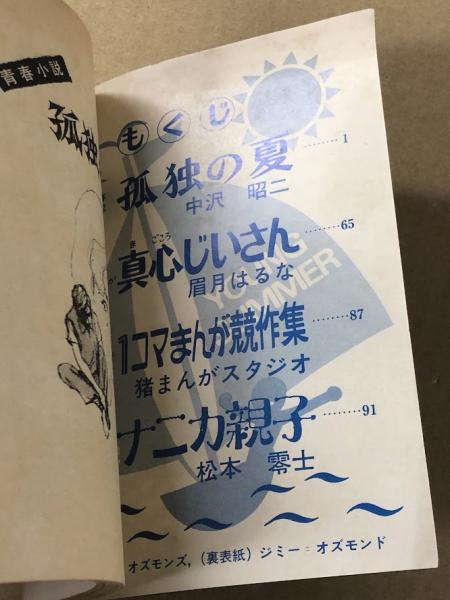 青春小説
孤独
もくじ
孤独の夏 ……… 1
中沢 昭二
真心じいさん ……… 65
まごころ
眉月はるな
YOUNG
SUMMER
1コマまんが競作集 ……… 87
猪まんがスタジオ
ナニカ親子 ……… 91
松本 零士
オズモンズ,(裏表紙)ジミー=オズモンド